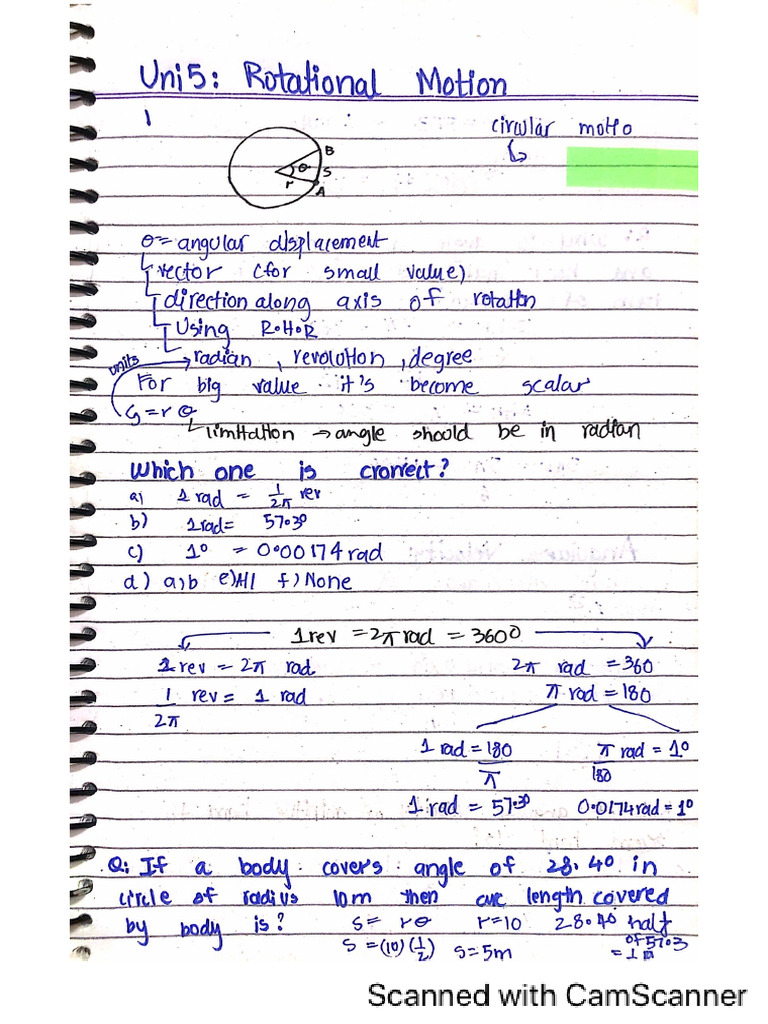 Uni5: Rotational Motion
1
circular motio
B
θ S
r
A
θ= angular displacement
vector (for small value)
direction along axis of rotation
Using R.H.R
units
radian, revolution, degree
For big value it's become scalar
S=rθ
limitation → angle should be in radian
Which one is crorrect?
a) 1 rad = 1/2π rev
b) 1rad= 57.3º
c) 1º = 0.00174 rad
d) a,b e)All f) None
1 rev = 2π rad = 360º
1 rev = 2π rad 2π rad = 360
1/2π rev = 1 rad π rad = 180
1 rad = 180/π π/180 rad = 1º
1 rad = 57.3º 0.0174 rad = 1º
Q: If a body covers angle of 28.4º in
circle of radius 10m then arc length covered
by body is? S = rθ r=10 28.4º half
of 57.3
S = (10)(1/2) S=5m